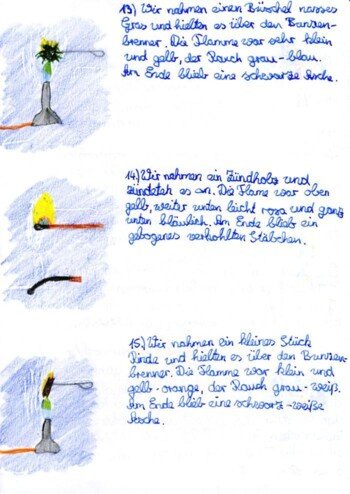 13) Wir nahmen einen Büschel nasses
Gras und hielten es über den Bunsen-
brenner. Die Flamme war sehr klein
und gelb, der Rauch grau-blau.
Am Ende blieb eine schwarze Asche.
14.) Wir nahmen ein Zündholz und
zündeteh es an. Die Flame war oben
gelb, weiter unten leicht rosa und ganz
unten bläulich. Am Ende blieb ein
gebogenes verkohlten Stäbchen.
15.) Wir nahmen ein kleines Stück
Rinde und hielten es über den Bunsen-
brenner. Die Flamme war klein und
gelb-orange, der Rauch grau-weiß.
Am Ende blieb eine schwarz-weiße
Asche.